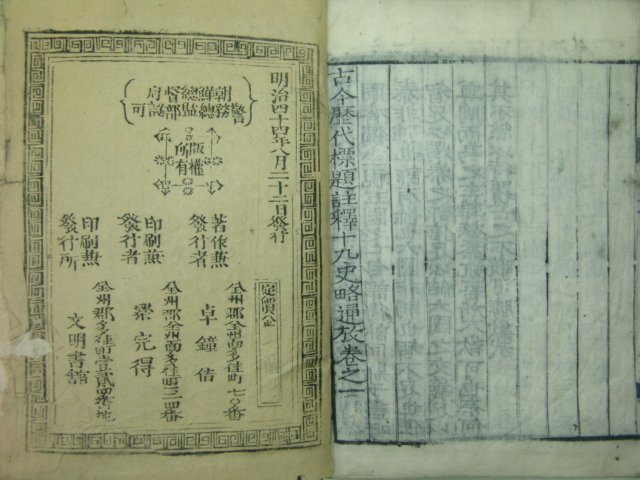 古今歷代標題註釋十九史略通攷卷之一
明治四十四年八月二十二日發行
朝鮮總督府
警務總監部認可
版權
所有
著作兼
發行者
全州郡全州面多佳町七〇番
卓鐘佶
印刷兼
發行者
全州郡全州面多佳町三四番
梁完得
印刷兼
發行所
全州郡多佳町壹貳四番地
文明書舘
定價金